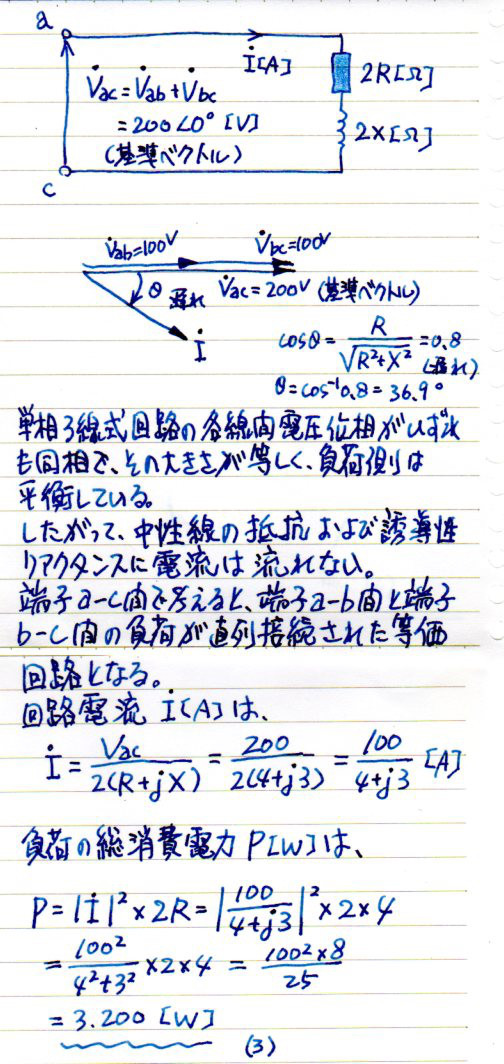 a
İ[A]
V̇ac=V̇ab+V̇bc
=200∠0° [V]
(基準ベクトル)
2R[Ω]
2X[Ω]
c
V̇ab=100V
V̇bc=100V
θ 遅れ
V̇ac=200V (基準ベクトル)
İ
cosθ= R/√(R²+X²) =0.8
(遅れ)
θ=cos⁻¹0.8=36.9°
単相3線式回路の各線間電圧位相がいずれ
も同相で、その大きさが等しく、負荷側は
平衡している。
したがって、中性線の抵抗および誘導性
リアクタンスに電流は流れない。
端子a-c間で考えると、端子a-b間と端子
b-c間の負荷が直列接続された等価
回路となる。
回路電流 İ[A]は、
İ= Vac/2(R+jX) = 200/2(4+j3) = 100/4+j3 [A]
負荷の総消費電力P[W]は、
P=|İ|²×2R=|100/4+j3|²×2×4
= 100²/4²+3² ×2×4 = 100²×8/25
=3.200 [W]
(3)